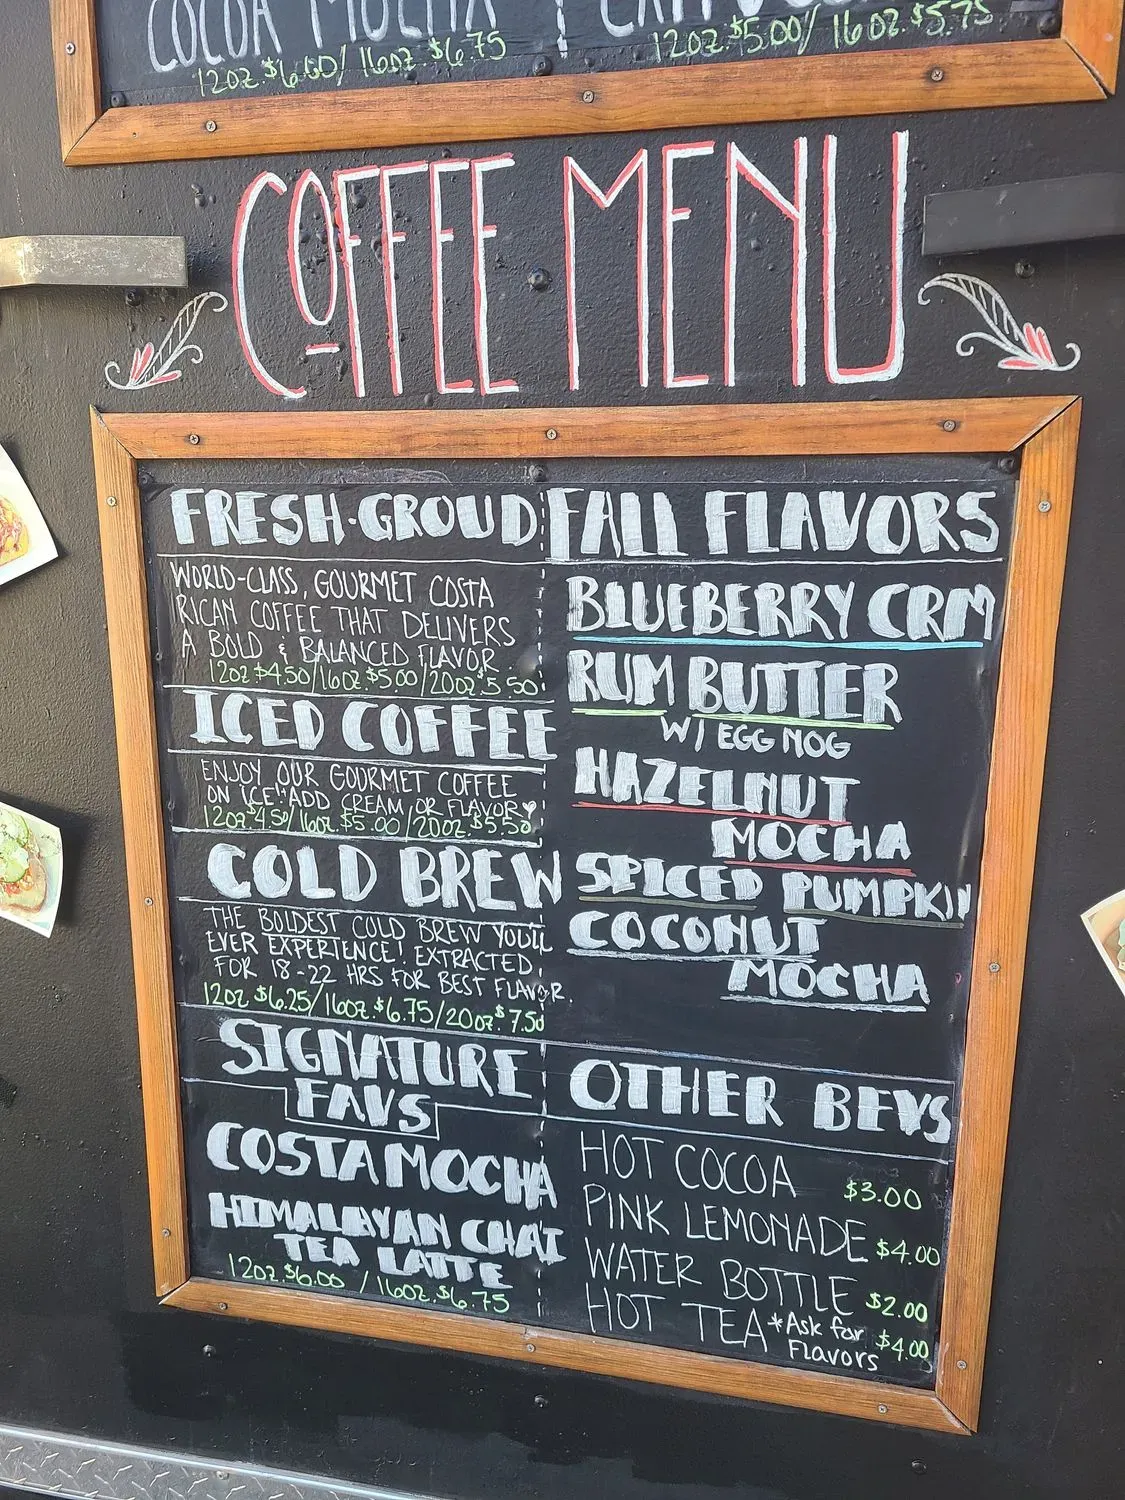 COCOA MOCHA
12OZ. $6.00/ 16OZ. $6.75
12OZ. $5.00/ 16OZ. $5.75
COFFEE MENU
FRESH-GROUD
WORLD-CLASS, GOURMET COSTA
RICAN COFFEE THAT DELIVERS
A BOLD & BALANCED FLAVOR.
12OZ $4.50/16OZ. $5.00/20OZ. $5.50
ICED COFFEE
ENJOY OUR GOURMET COFFEE
ON ICE "ADD CREAM OR FLAVOR♥
12OZ $4.50/16OZ. $5.00/20OZ. $5.50
COLD BREW
THE BOLDEST COLD BREW YOU'LL
EVER EXPERIENCE! EXTRACTED
FOR 18-22 HRS FOR BEST FLAVOR.
12OZ $6.25/16OZ. $6.75/20OZ. $7.50
SIGNATURE
FAVS
COSTA MOCHA
HIMALAYAN CHAI
TEA LATTE
12OZ. $6.00 / 16OZ. $6.75
FALL FLAVORS
BLUEBERRY CRM
RUM BUTTER
W/ EGG NOG
HAZELNUT
MOCHA
SPICED PUMPKIN
COCONUT
MOCHA
OTHER BEVS
HOT COCOA $3.00
PINK LEMONADE $4.00
WATER BOTTLE $2.00
HOT TEA *Ask for Flavors $4.00